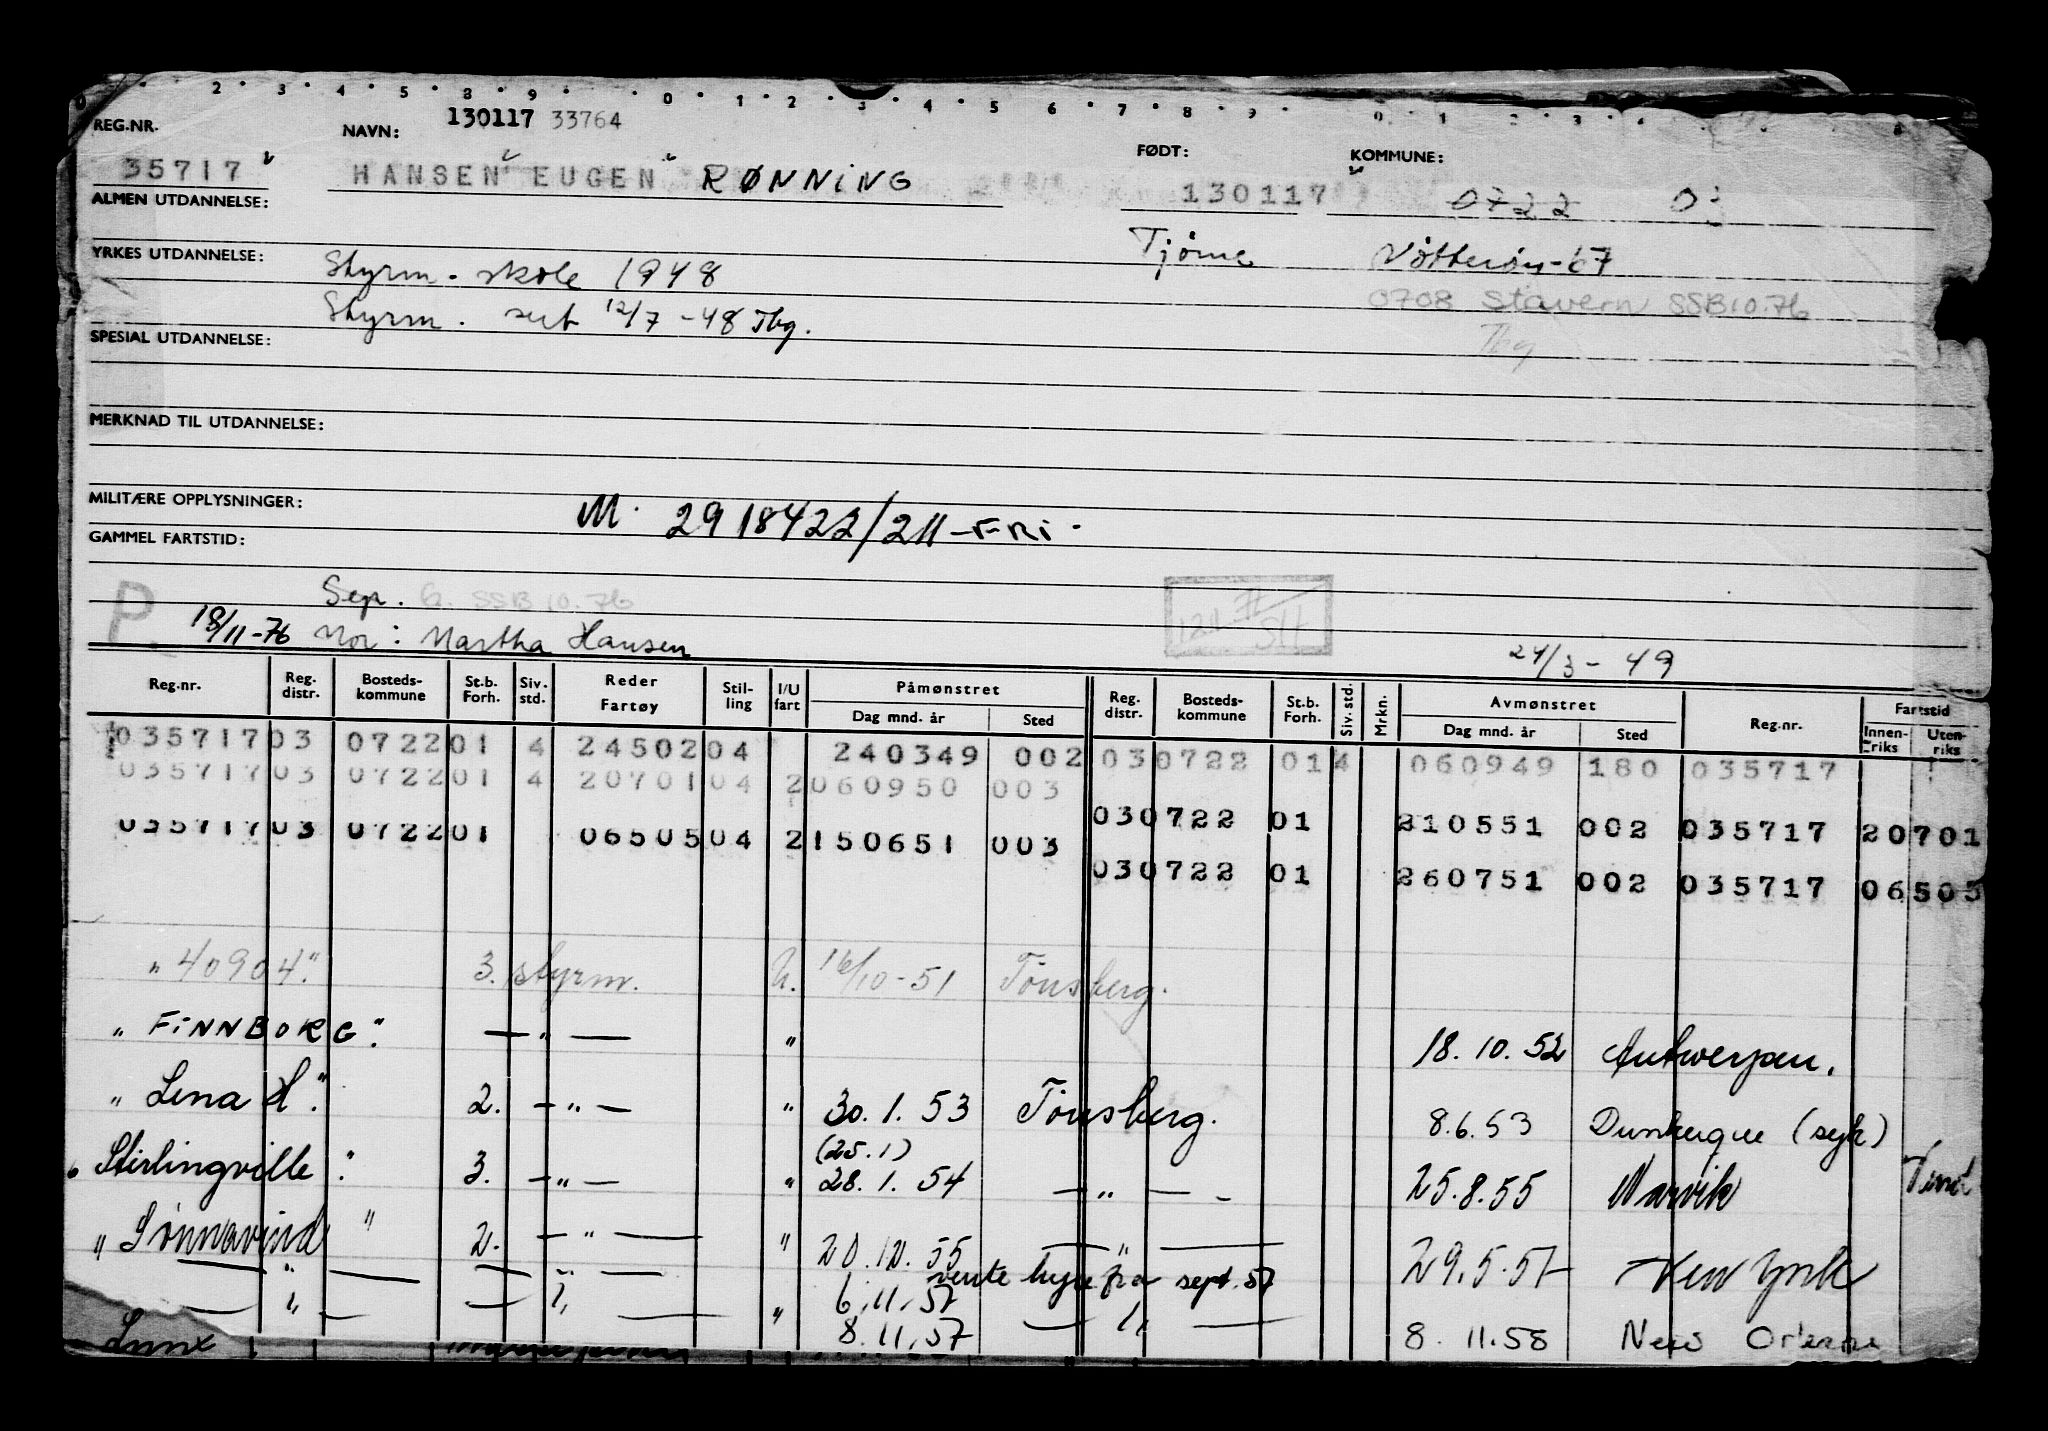 130117 33764
REG.NR. NAVN: FØDT: KOMMUNE:
35717 HANSEN EUGEN RØNNING 130117 0722
ALMEN UTDANNELSE:
Tjøme Nøtterøy-67
YRKES UTDANNELSE: Styrm. skole 1948
0708 Stavern SSB 10.76
Styrm. sert 12/7-48 Tbg.
Tbg
SPESIAL UTDANNELSE:
MERKNAD TIL UTDANNELSE:
MILITÆRE OPPLYSNINGER: M. 2918422/211-FRi.
GAMMEL FARTSTID:
P. Sep. 6. SSB 10.76
18/11-76 Mor: Martha Hansen
24/3-49
Reg.nr. Reg. distr. Bosteds-kommune St.b. Forh. Siv. std. Reder Fartøy Stil-ling I/U fart Påmønstret Dag mnd. år Sted Reg. distr. Bosteds-kommune St.b. Forh. Siv. std. Mrkn. Avmønstret Dag mnd. år Sted Reg.nr. Fartstid Innen-riks Uten-riks
035717 03 0722 01 4 24502 04 240349 002 03 0722 01 4 060949 180 035717
035717 03 0722 01 4 20701 04 2 060950 003
03 0722 01 210551 002 035717 20701
035717 03 0722 01 06505 04 2 150651 003
03 0722 01 260751 002 035717 06505
"40904." 3. styrm. U. 16/10-51 Tønsberg.
"FiNNBORG." — " — " 18.10.52 Antwerpen.
"Lena H." 2. — " — " 30.1.53 Tønsberg. 8.6.53 Dunkerque (syk)
(25.1)
"Stirlingville" 3. — " — " 28.1.54 — " — 25.8.55 Narvik
"Sønnavind" 2. — " — " 20.12.55 — " — 29.5.57 New York
— " — — " — vente hyre fra sept. 57
— " — — " — " 6.11.57 — " —
8.11.57 8.11.58 New Orleans